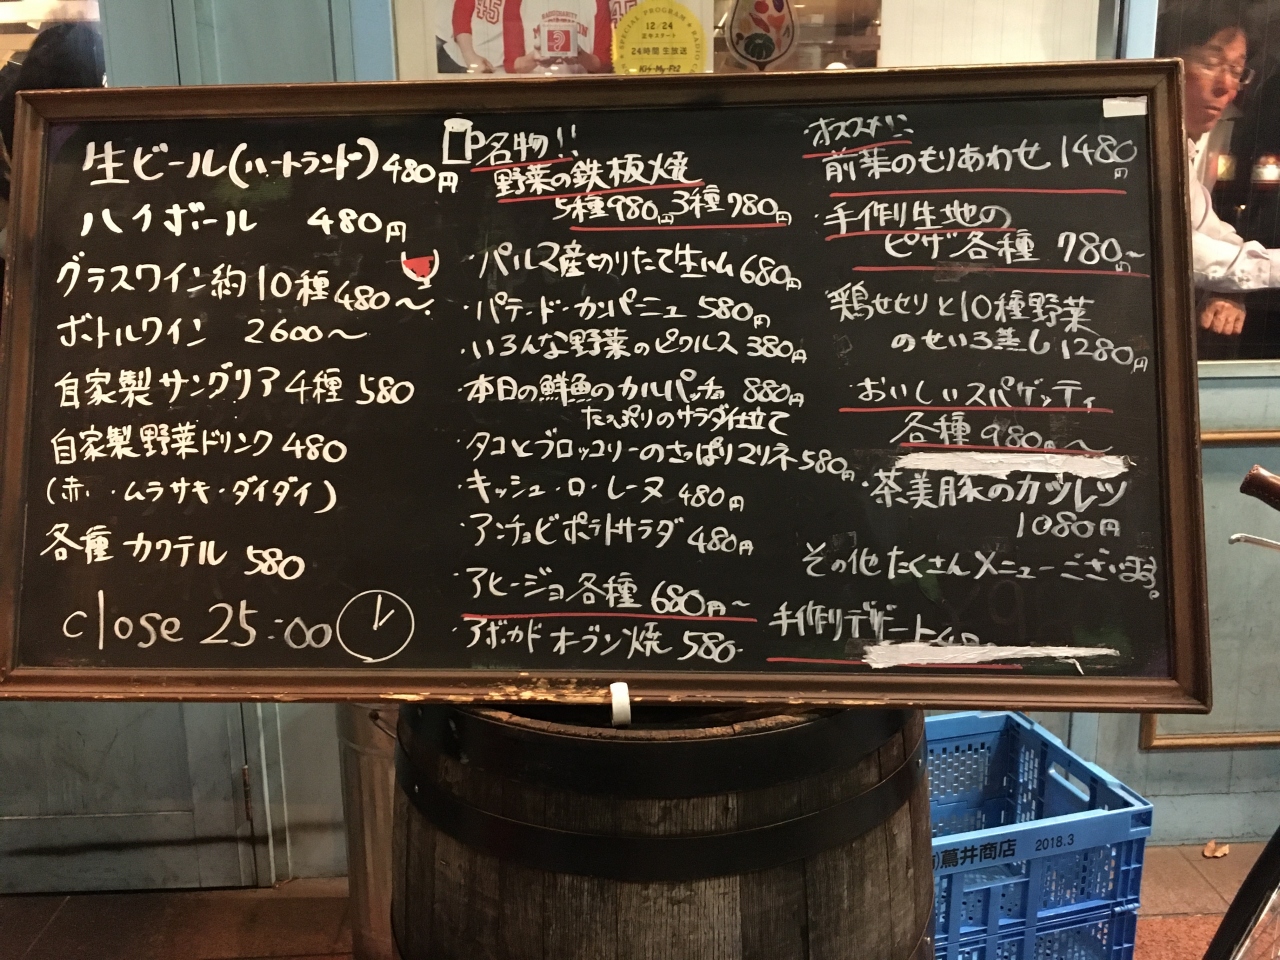 12/24
24時間 生放送
Kis-My-Ft2
生ビール(ハートランド)480円
ハイボール 480円
グラスワイン約10種480〜
ボトルワイン 2600〜
自家製サングリア4種 580
自家製野菜ドリンク480
(赤・ムラサキ・ダイダイ)
各種カクテル 580
close 25:00
名物!!
野菜の鉄板焼
5種980円3種780円
・パルマ産切りたて生ハム680円
・パテ・ド・カンパーニュ 580円
・いろんな野菜のピクルス 380円
・本日の鮮魚のカルパッチョ 880円
たっぷりのサラダ仕立て
・タコとブロッコリーのさっぱりマリネ580円
・キッシュ・ロ・レーヌ 480円
・アンチョビポテトサラダ 480円
・アヒージョ各種 680円〜
・アボカドオーブン焼 580-
・オススメ!!
前菜のもりあわせ 1480円
・手作り生地の
ピザ各種 780円〜
鶏せせりと10種野菜
のせいろ蒸し1280円
おいしいスパゲッティ
各種980円〜
・茶美豚のカツレツ
1080円
その他たくさんメニューございます。
手作りデザート
蔦井商店 2018.3